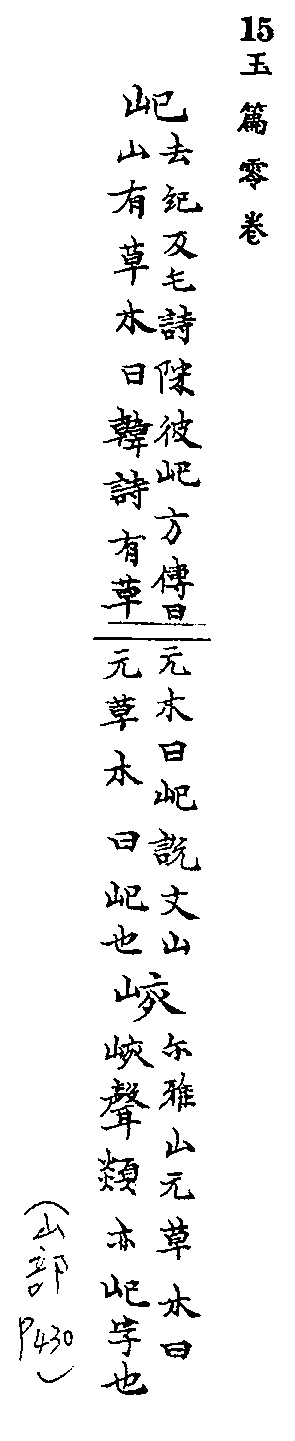 15玉篇零卷
屺
去紀反毛詩陟彼屺方傳曰
山有草木曰韓詩有草
元木曰屺説文山
元草木曰屺也
峐
尓雅山元草木曰
峐聲類亦屺字也
(山部 P430)